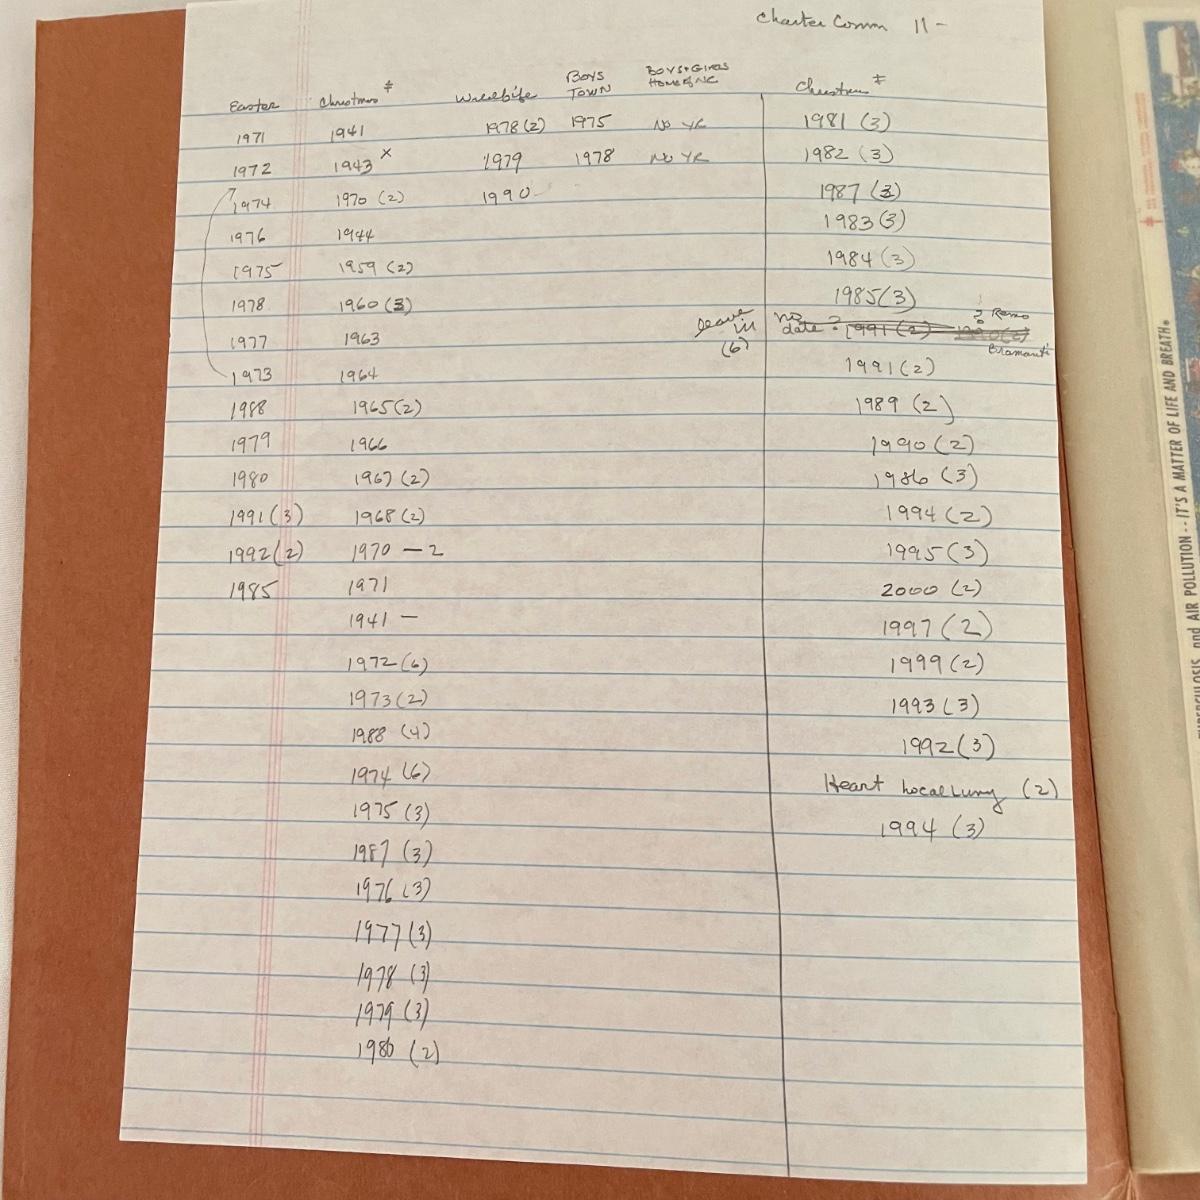 Charter Comm 11-
Easter Christmas ‡ Wildlife BOYS TOWN BOYS+GIRLS HOME of NC Christmas ‡
1971 1941 1978 (2) 1975 NO YR 1981 (3)
1972 1943 x 1979 1978 NO YR 1982 (3)
1974 1970 (2) 1990 1987 (3)
1976 1944 1983 (3)
1975 1959 (2) 1984 (3)
1978 1960 (3) 1985 (3)
1977 1963 leave in (6) no date ? 1991 (2) ? Bramanti
1973 1964 1991 (2)
1988 1965 (2) 1989 (2)
1979 1966 1990 (2)
1980 1967 (2) 1986 (3)
1991 (3) 1968 (2) 1994 (2)
1992 (2) 1970 — 2 1995 (3)
1985 1971 2000 (2)
1941 — 1997 (2)
1972 (6) 1999 (2)
1973 (2) 1993 (3)
1988 (4) 1992 (3)
1974 (6) Heart Local Lung (2)
1975 (3) 1994 (3)
1987 (3)
1976 (3)
1977 (3)
1978 (3)
1979 (3)
1980 (2)
TUBERCULOSIS and AIR POLLUTION -- IT'S A MATTER OF LIFE AND BREATH